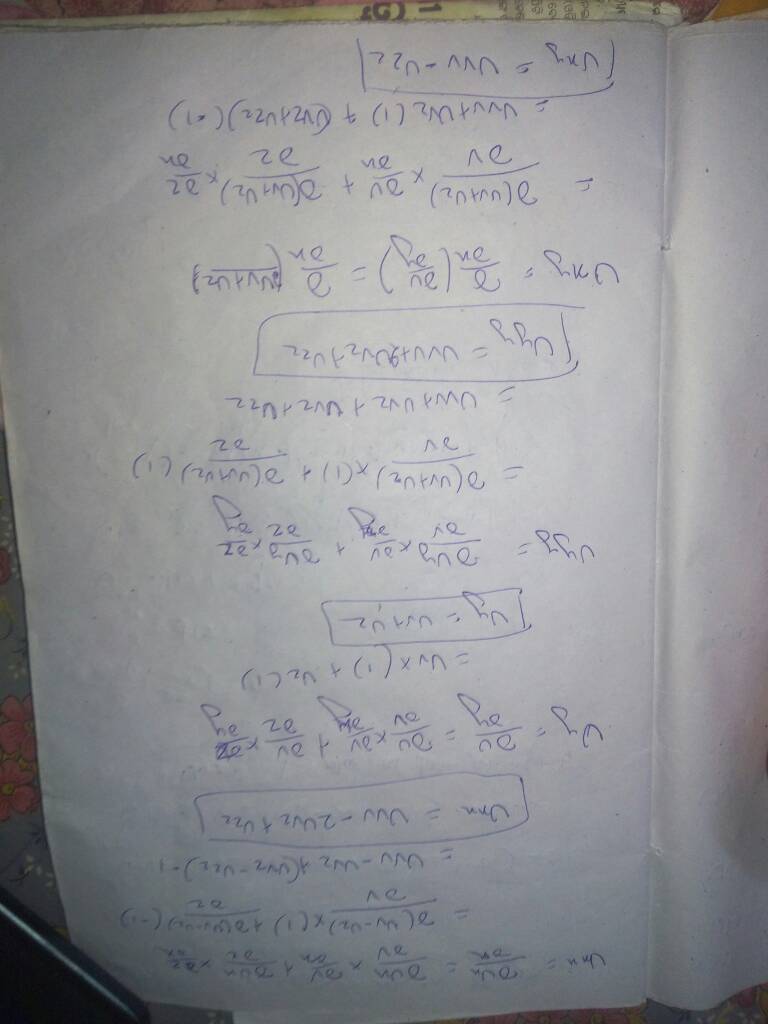 Uxx = ∂Ux/∂x = ∂Ux/∂v × ∂v/∂x + ∂Ux/∂z × ∂z/∂x
= ∂(Uv-Uz)/∂v × (1) + ∂(Uv-Uz)/∂z (-1)
= Uvv - Uvz + (Uvz - Uzz) -1
Uxx = Uvv - 2Uvz + Uzz
Uy = ∂U/∂y = ∂U/∂v × ∂v/∂y + ∂U/∂z × ∂z/∂y
= Uv × (1) + Uz (1)
Uy = Uv + Uz
Uyy = ∂Uy/∂v × ∂v/∂y + ∂Uy/∂z × ∂z/∂y
= ∂(Uv+Uz)/∂v × (1) + ∂(Uv+Uz)/∂z (1)
= Uvv + Uvz + Uvz + Uzz
Uyy = Uvv + 2Uvz + Uzz
Uxy = ∂/∂x (∂U/∂y) = ∂/∂x (Uv+Uz)
= ∂(Uv+Uz)/∂v × ∂v/∂x + ∂(Uv+Uz)/∂z × ∂z/∂x
= Uvv + Uvz (1) + (Uvz + Uzz) (-1)
Uxy = Uvv - Uzz